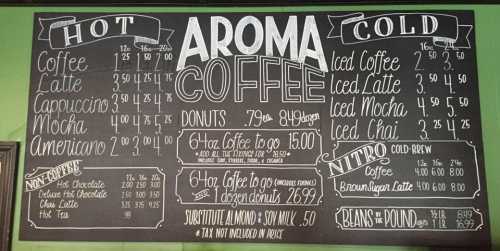 HOT
12oz 16oz 20oz
Coffee 1.25 1.50 2.00
Latte 3.50 4.25 4.75
Cappuccino 3.50 4.25 4.75
Mocha 4.00 4.75 5.25
Americano 2.00 3.00 4.00
NON-COFFEE
12oz 16oz 20oz
Hot Chocolate 2.00 2.50 3.00
Deluxe Hot Chocolate 2.50 3.00 3.50
Chai Latte 3.25 3.75 4.25
Hot Tea .99
AROMA
COFFEE
DONUTS .79ea 8.49 dozen
64oz Coffee to go 15.00
64oz Coffee to go
1 dozen donuts 26.99
SUBSTITUTE ALMOND & SOY MILK .50
* TAX NOT INCLUDED IN PRICE
COLD
16oz 24oz
Iced Coffee
Iced Latte 3.50 4.50
Iced Mocha 4.50 5.50
Iced Chai
NITRO COLD-BREW
12oz 16oz 24oz
Coffee 4.00 6.00 8.00
Brown Sugar Latte 4.00 6.00 8.00
BEANS BY THE POUND
1/2 LB 8.49
1 LB 16.99